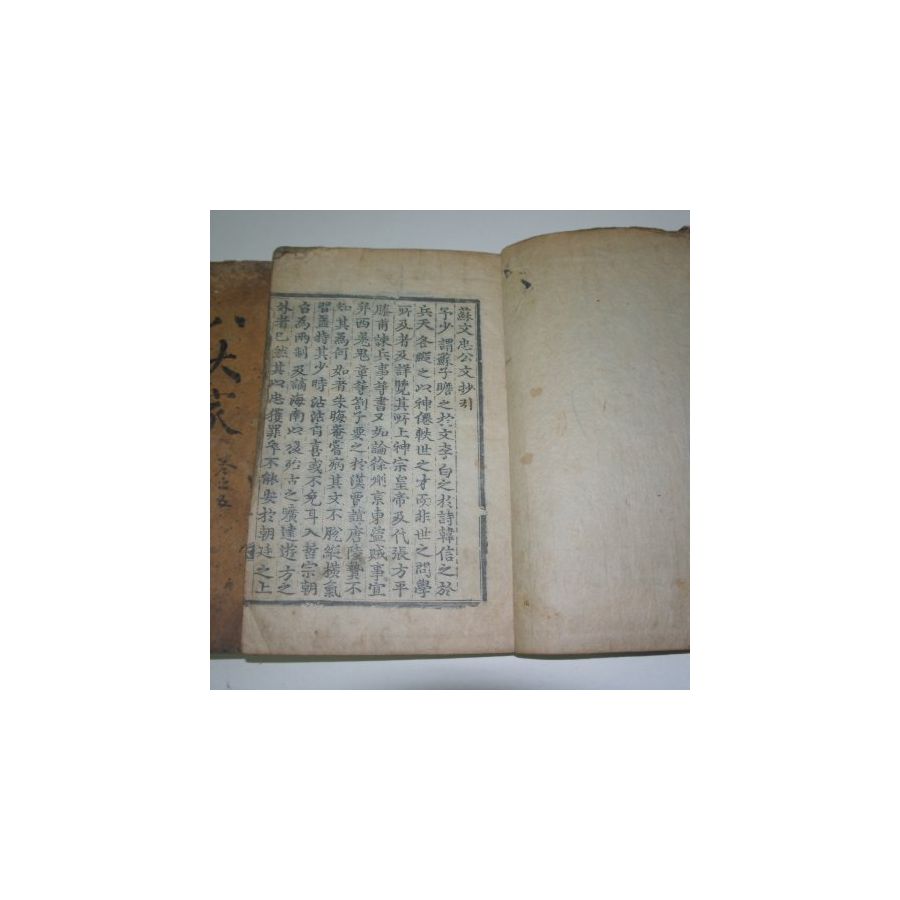 蘇文忠公文抄引
予少謂蘇子瞻之於文李白之於詩韓信之於
兵天各縱之以神僊軼世之才而非世之問學
所及者及詳覽其所上神宗皇帝及代張方平
滕甫諫兵事等書又如論徐州京東盜賊事宜
并西羌鬼章等劄子要之於漢賈誼唐陸贄不
知其為何如者朱晦菴嘗病其文不脫縱橫氣
習蓋特其少時沾沾自喜或不免耳入哲宗朝
召為兩制及謫海南以後殆古之曠達遊方之
外者已然其以忠獲罪卒不能安於朝廷之上
八大家